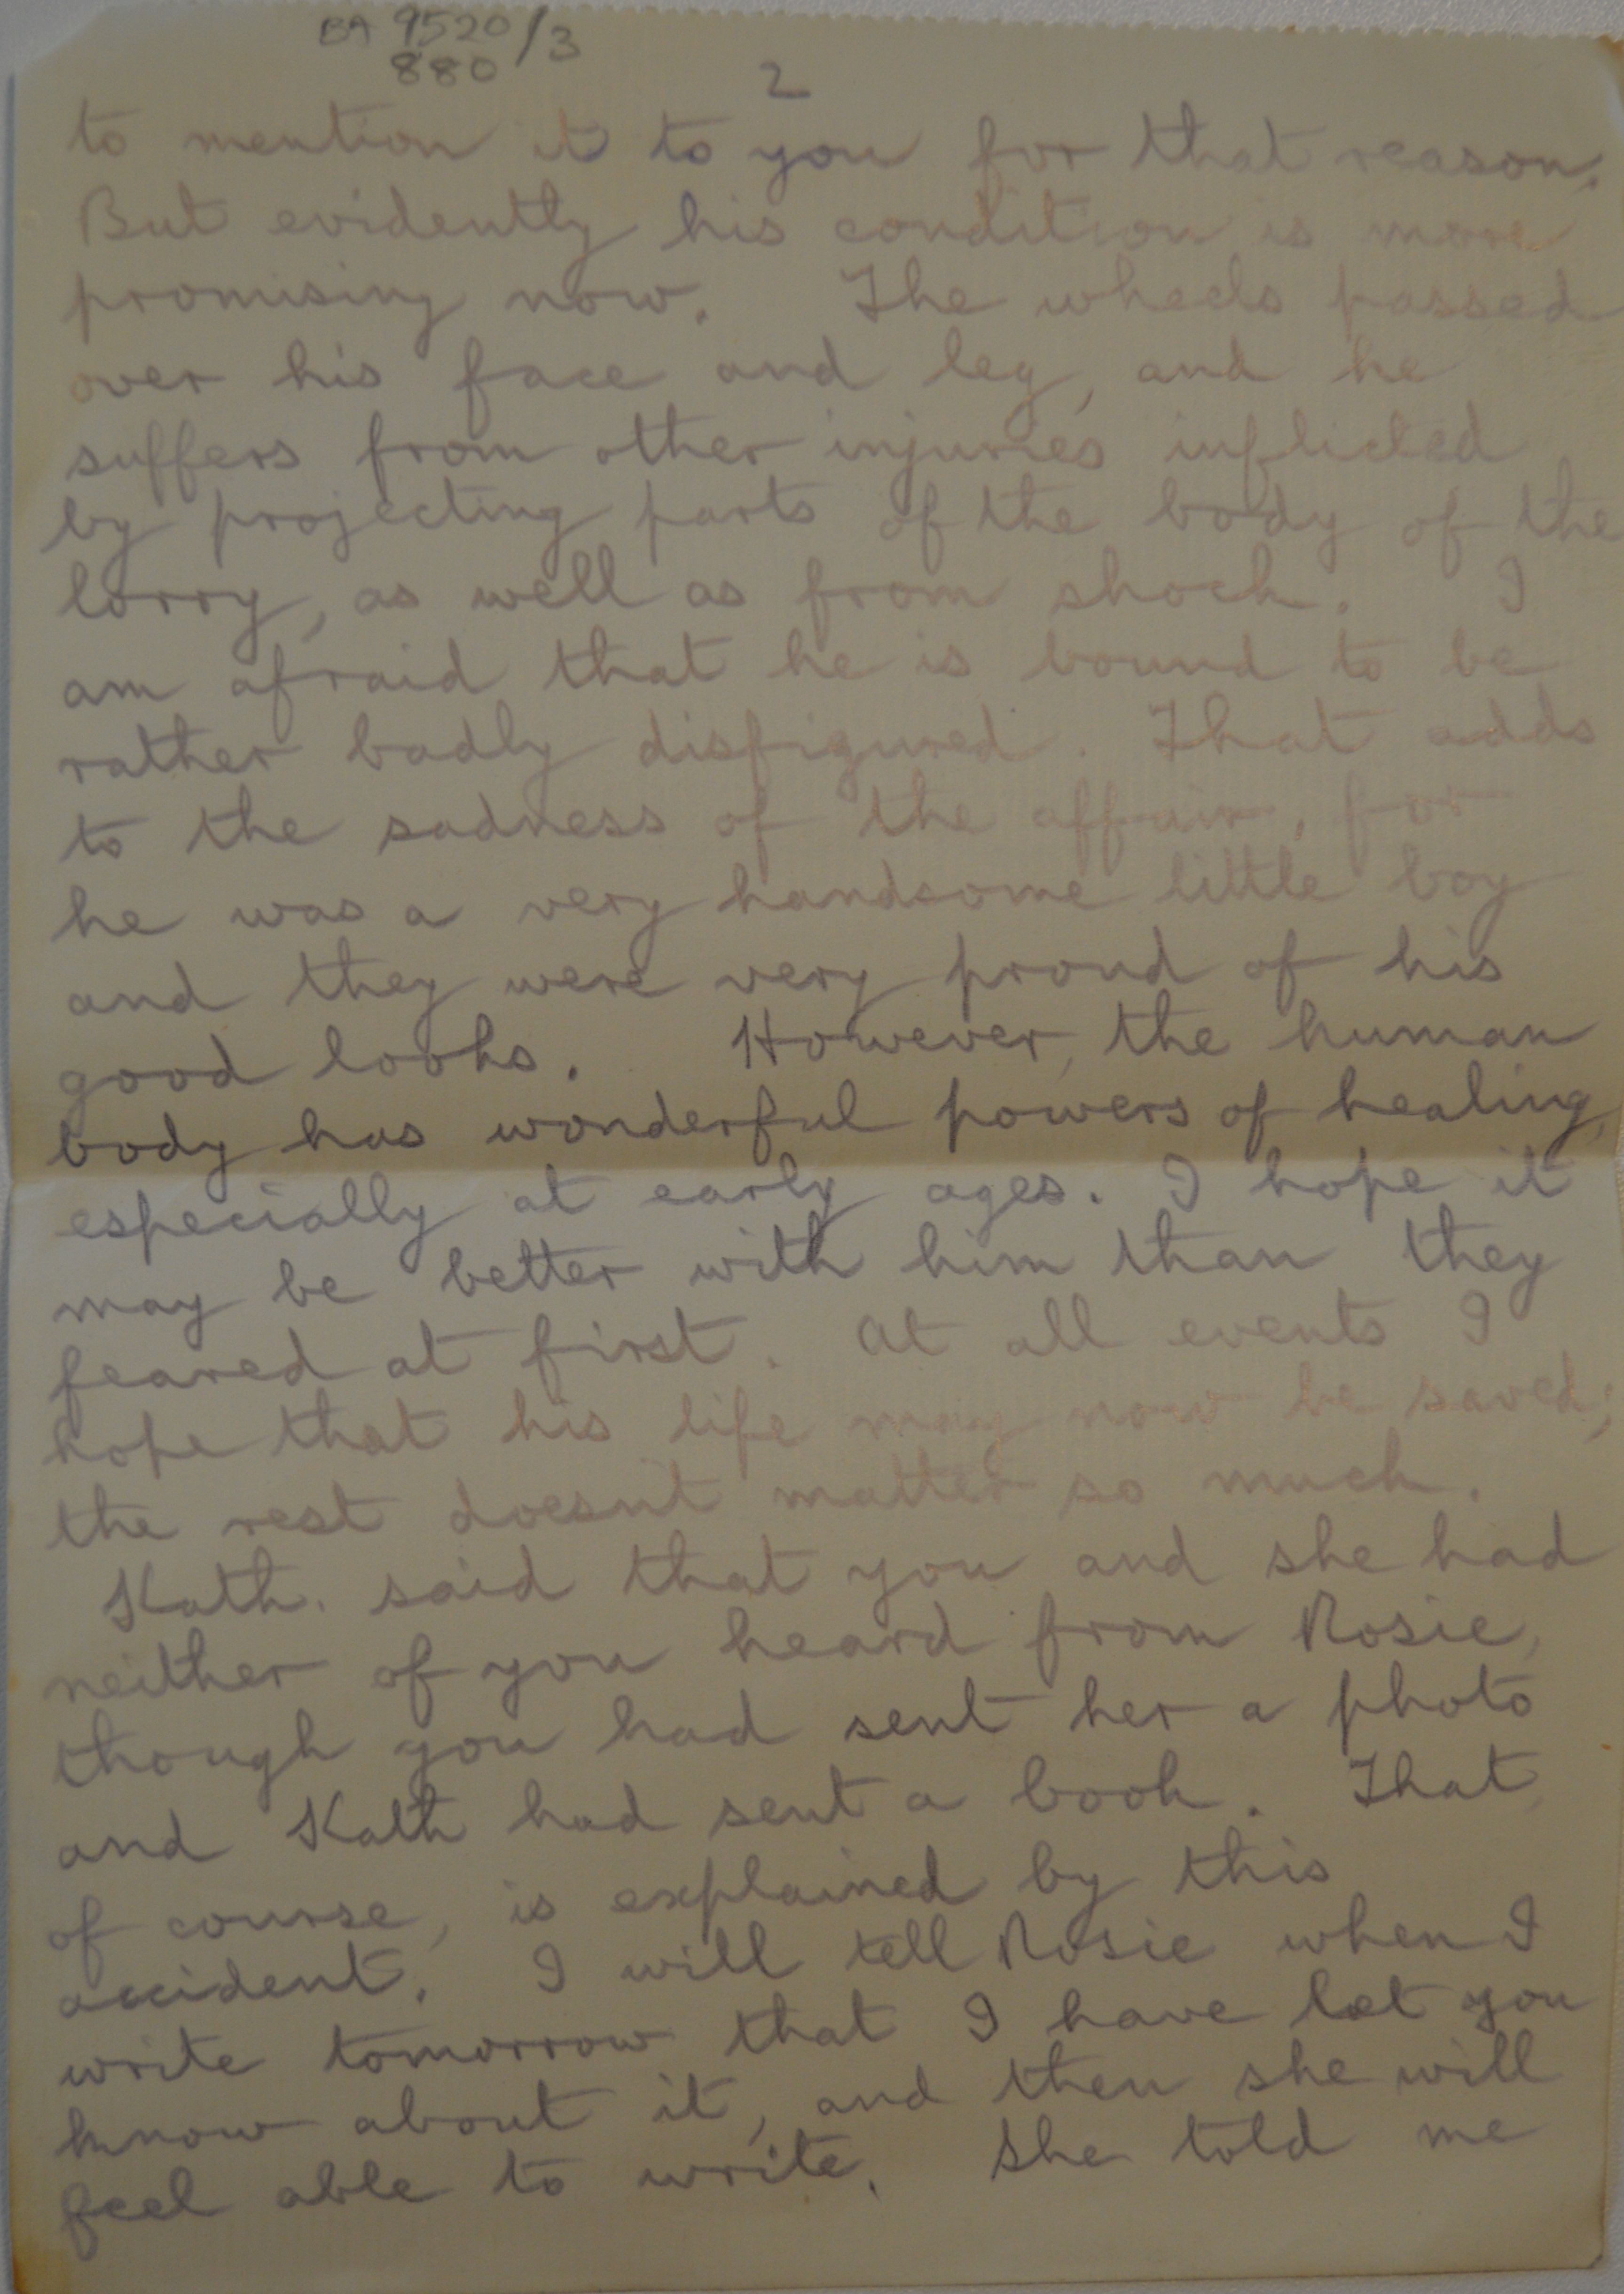 BA 9520/3
880
2
to mention it to you for that reason.
But evidently his condition is more
promising now. The wheels passed
over his face and leg, and he
suffers from other injuries inflicted
by projecting parts of the body of the
lorry, as well as from shock. I
am afraid that he is bound to be
rather badly disfigured. That adds
to the sadness of the affair, for
he was a very handsome little boy
and they were very proud of his
good looks. However, the human
body has wonderful powers of healing,
especially at early ages. I hope it
may be better with him than they
feared at first. At all events I
hope that his life may now be saved;
the rest doesn't matter so much.
Kath. said that you and she had
neither of you heard from Rosie,
though you had sent her a photo
and Kath had sent a book. That,
of course, is explained by this
accident. I will tell Rosie when I
write tomorrow that I have let you
know about it, and then she will
feel able to write. She told me